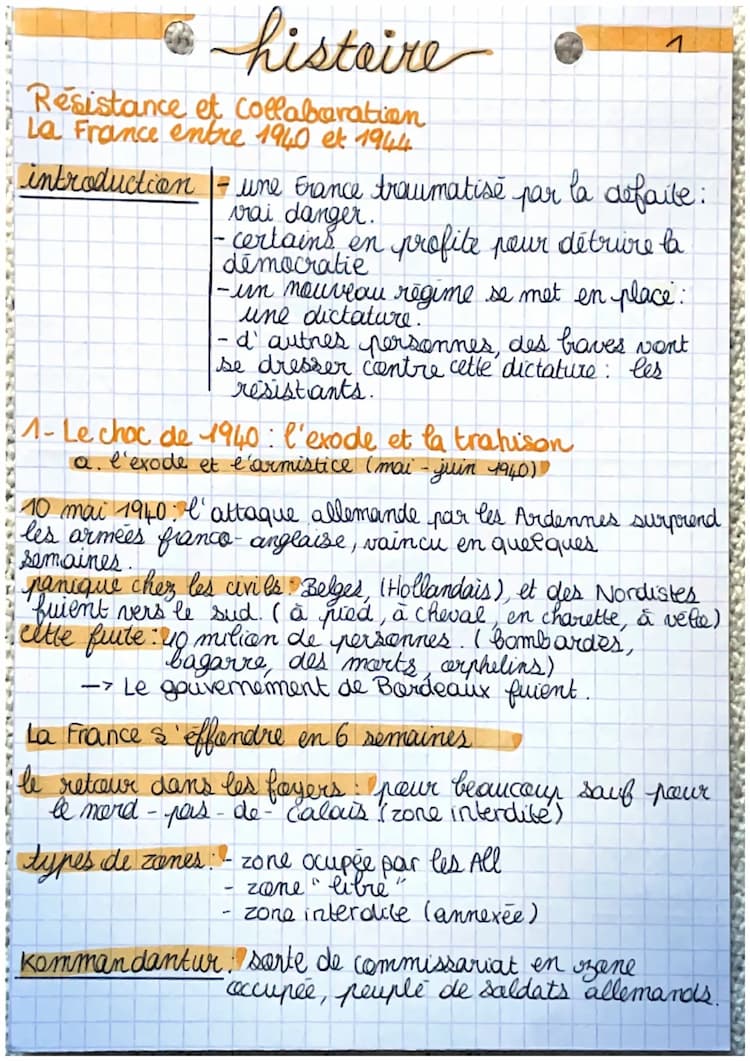 histoire
1
Résistance et Collaboration
La France entre 1940 et 1944
introduction
- une France traumatisé par la défaite :
vrai danger.
- certains en profite pour détruire la
démocratie
- un nouveau régime se met en place :
une dictature.
- d'autres personnes, des braves vont
se dresser contre cette dictature : les
résistants.
1- Le choc de 1940 : l'exode et la trahison
a. l'exode et l'armistice (mai - juin 1940)
10 mai 1940 : l'attaque allemande par les Ardennes surprend
les armées franco-anglaise, vaincu en quelques
semaines.
panique chez les civils : Belges, (Hollandais), et des Nordistes
fuient vers le sud. (à pied, à cheval, en charette, à vélo)
cette fuite : 10 milion de personnes. (bombardés,
bagarre, des morts, orphelins)
—> Le gouvernement de Bordeaux fuient.
La France s'éffondre en 6 semaines
le retour dans les foyers : pour beaucoup sauf pour
le nord - pas - de - Calais (zone interdite)
types de zones : - zone ocupée par les All
- zone "libre"
- zone interdite (annexée)
Kommandantur : sorte de commissariat en zone
occupée, peuplé de soldats allemands.